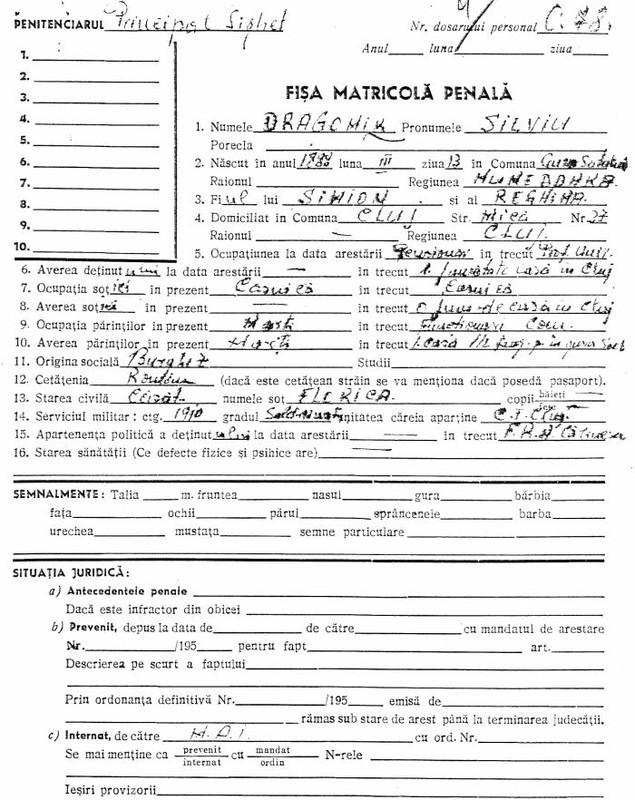 PENITENCIARUL Principal Sighet
Nr. dosarului personal C. 78.
Anul luna ziua
1.
2.
3.
4.
5.
6.
7.
8.
9.
10.
FIȘA MATRICOLĂ PENALĂ
1. Numele DRAGOMIR Pronumele SILVIU
Porecla
2. Născut în anul luna III ziua 13 în Comuna
Raionul Regiunea HUNEDOARA
3. Fiul lui SIMION și al REGHINA.
4. Domiciliat in Comuna CLUJ Str. Mica Nr. 27
Raionul — Regiunea CLUJ.
5. Ocupațiunea la data arestării in trecut
6. Averea deținutului la data arestării — in trecut casă in Cluj
7. Ocupația soției în prezent Casnică în trecut Casnică
8. Averea soției în prezent — în trecut de casă in Cluj
9. Ocupația părinților in prezent Morți in trecut Com.
10. Averea părinților in prezent Morți in trecut
11. Origina socială Burghez Studii
12. Cetățenia Română (dacă este cetățean străin se va menționa dacă posedă pașaport).
13. Starea civilă numele soț. FLORICA. copii băieți —
fete
14. Serviciul militar: ctg. 1910 gradul unitatea căreia aparține Cluj.
15. Apartenența politică a deținutului la data arestării — in trecut
16. Starea sănătății (Ce defecte fizice și psihice are) —
SEMNALMENTE: Talia m. fruntea nasul gura bărbia
fața ochii părul sprâncenele barba
urechea mustața semne particulare
SITUAȚIA JURIDICĂ:
a) Antecedentele penale
Dacă este infractor din obicei
b) Prevenit, depus la data de de către cu mandatul de arestare
Nr. /195 pentru fapt art.
Descrierea pe scurt a faptului
Prin ordonanța definitivă Nr. /195 emisă de
rămas sub stare de arest până la terminarea judecății.
c) Internat, de către M.A.I. cu ord. Nr.
Se mai menține ca prevenit cu mandat N-rele
internat ordin
Ieșiri provizorii